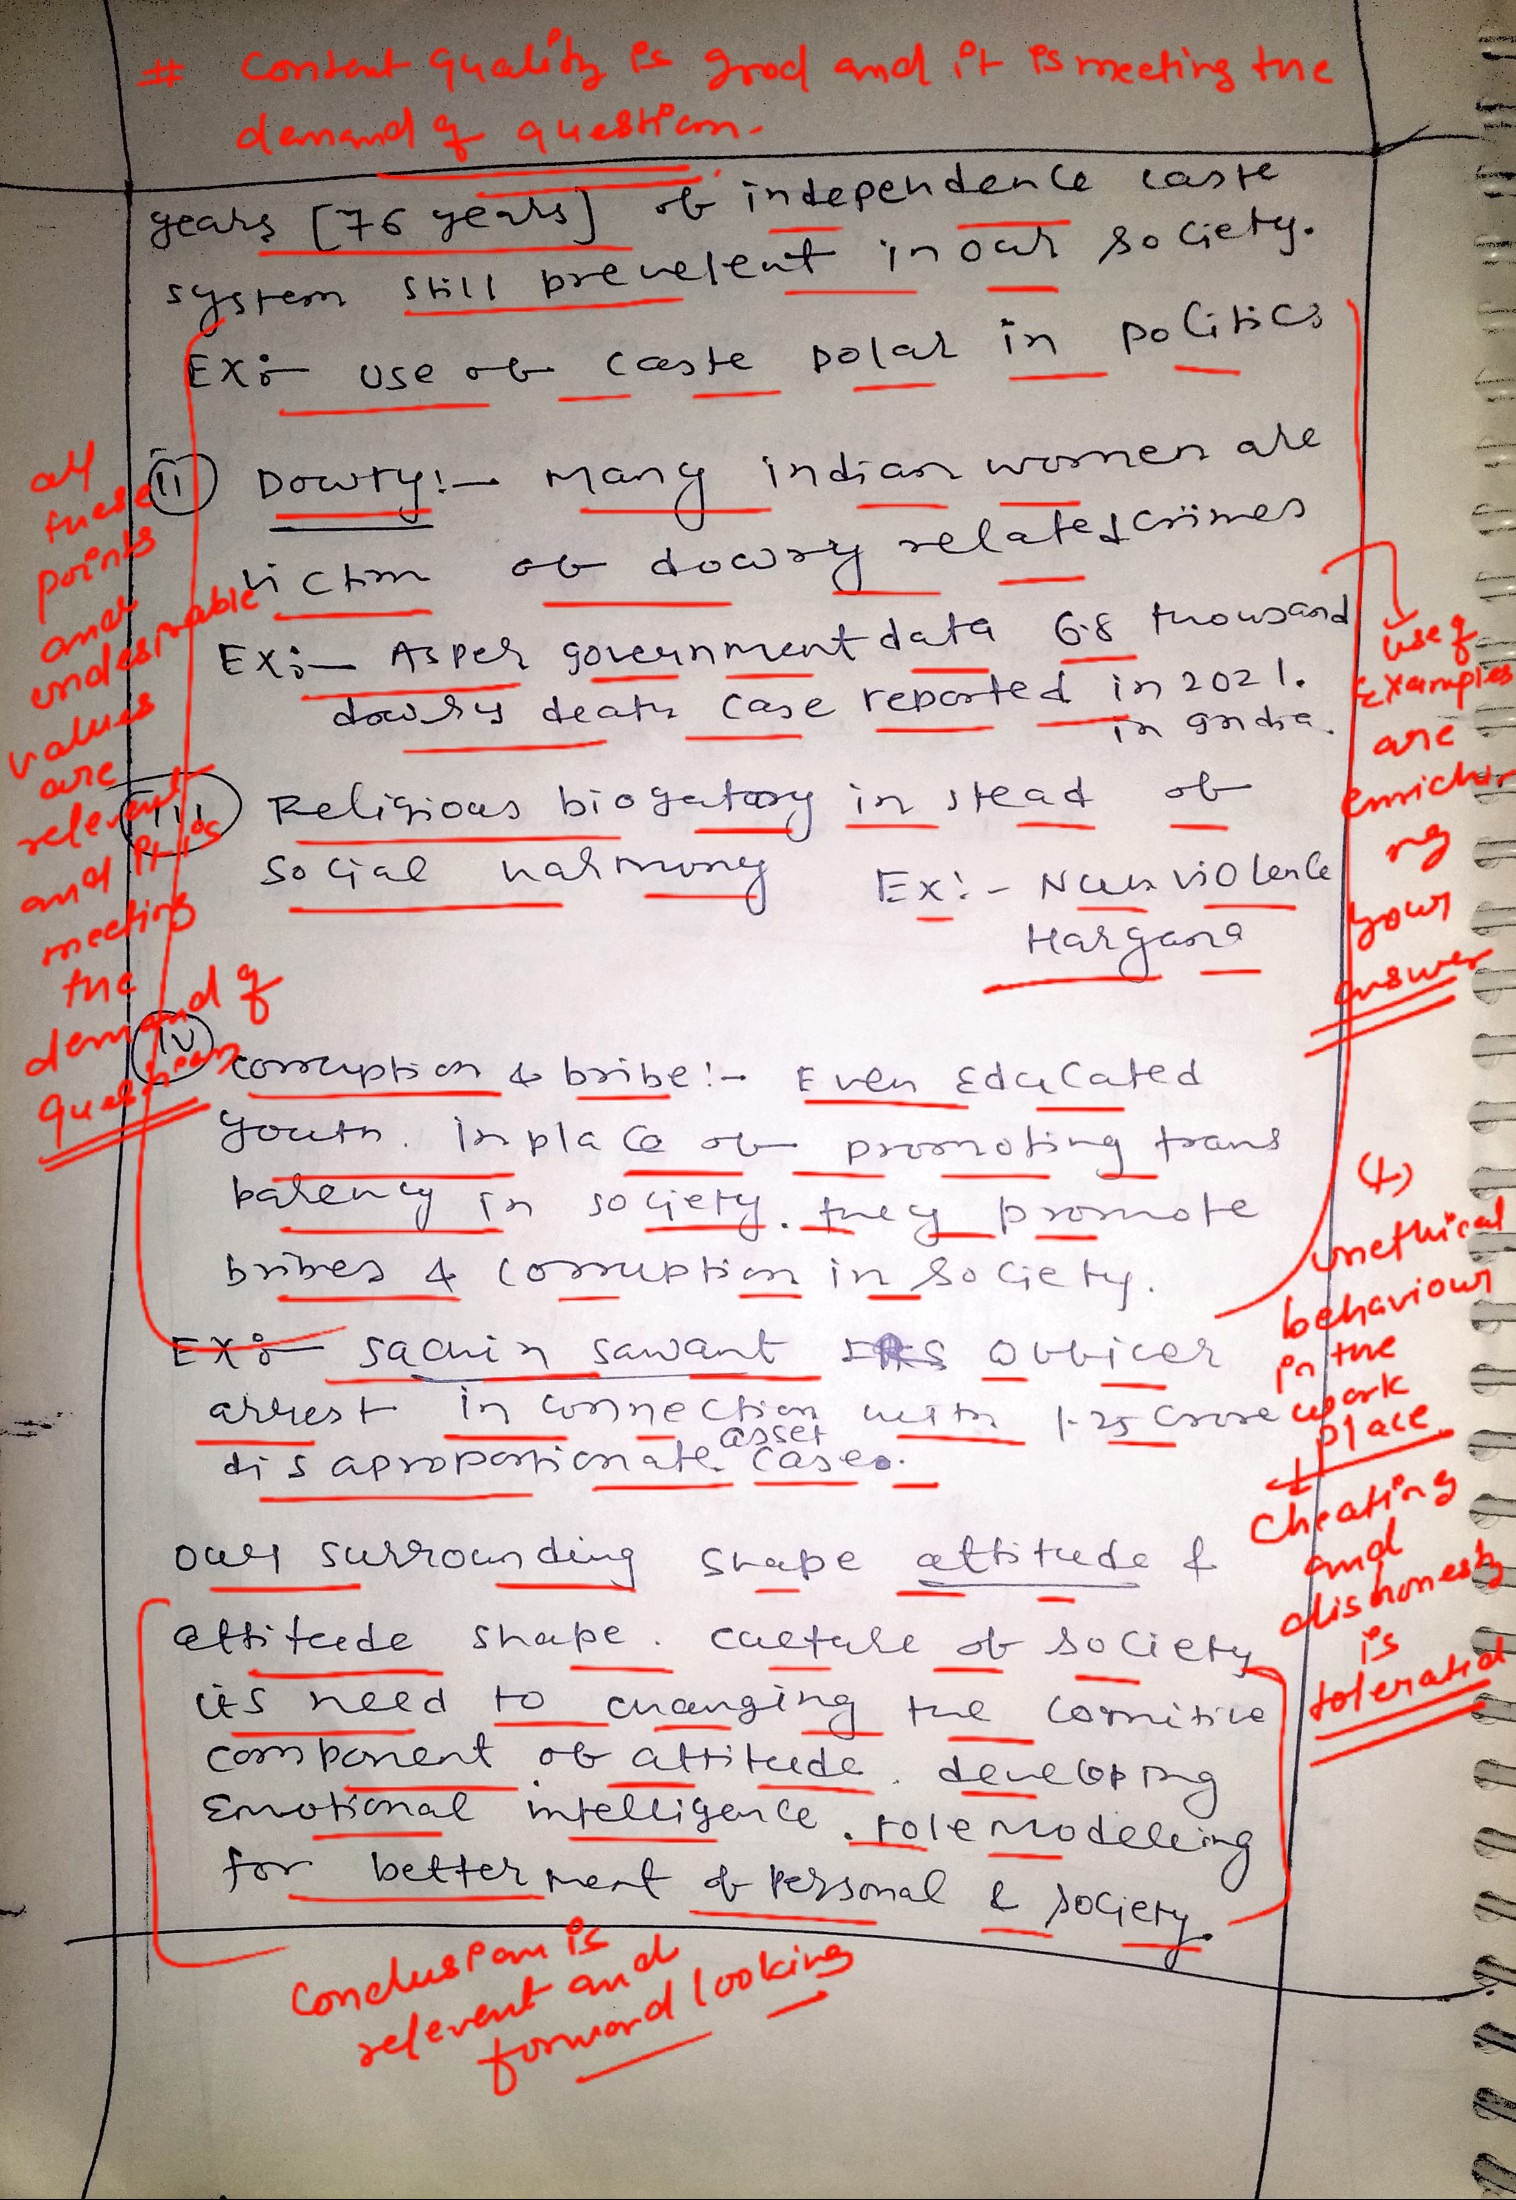 # Content quality is good and it is meeting the
demand of question.
years [76 years] of independence caste
system still prevelent in our society.
Ex:- use of caste polar in politics
(ii) Dowry:- Many indian women are
victim of dowry related crimes
Ex:- As per government data 6.8 thousand
dowry death case reported in 2021.
in India.
(iii) Religious biogatory in stead of
social harmony Ex:- Nuh violence
Haryana
(iv) corruption & bribe:- Even Educated
youth. In place of promoting trans
parency in society. they promote
bribes & corruption in society.
Ex:- Sachin Sawant IRS officer
arrest in connection with 1.25 crore
asset
disaproportionate cases.
our surrounding shape attitude &
attitude shape. culture of society
its need to changing the cognitive
component of attitude. developing
Emotional intelligence. role modelling
for betterment of personal & society.
all
these
points
and
undesirable
values
are
relevent
and it is
meeting
the
demand of
question
use of
examples
are
enrichi
ng
your
answer
(+)
unethical
behaviour
in the
work
place
Cheating
and
dishonesty
is
tolerated
Conclusion is
relevent and
forward looking